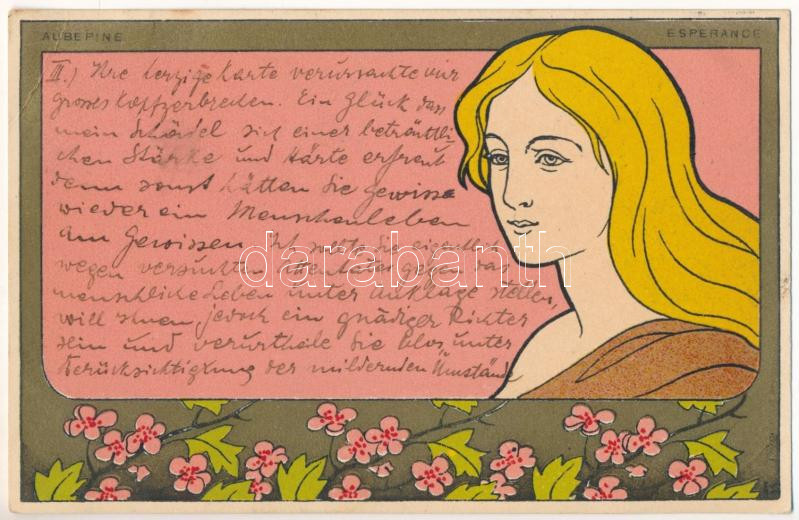 AUBEPINE
ESPERANCE
III.) Ihre herzige Karte verursachte mir
grosses Kopfzerbrechen. Ein Glück dass
mein Schädel sich einer beträchtli-
chen Stärke und Härte erfreut
denn sonst hätten Sie gewisse
wieder ein Menschenleben
am Gewissen. Ich sollte Sie eigentlich
wegen versuchten Attentates gegen das
menschliche Leben unter Anklage stellen,
will Ihnen jedoch ein gnädiger Richter
sein und verurtheile Sie blos unter
Berücksichtigung der mildernden Umstände
darabanth